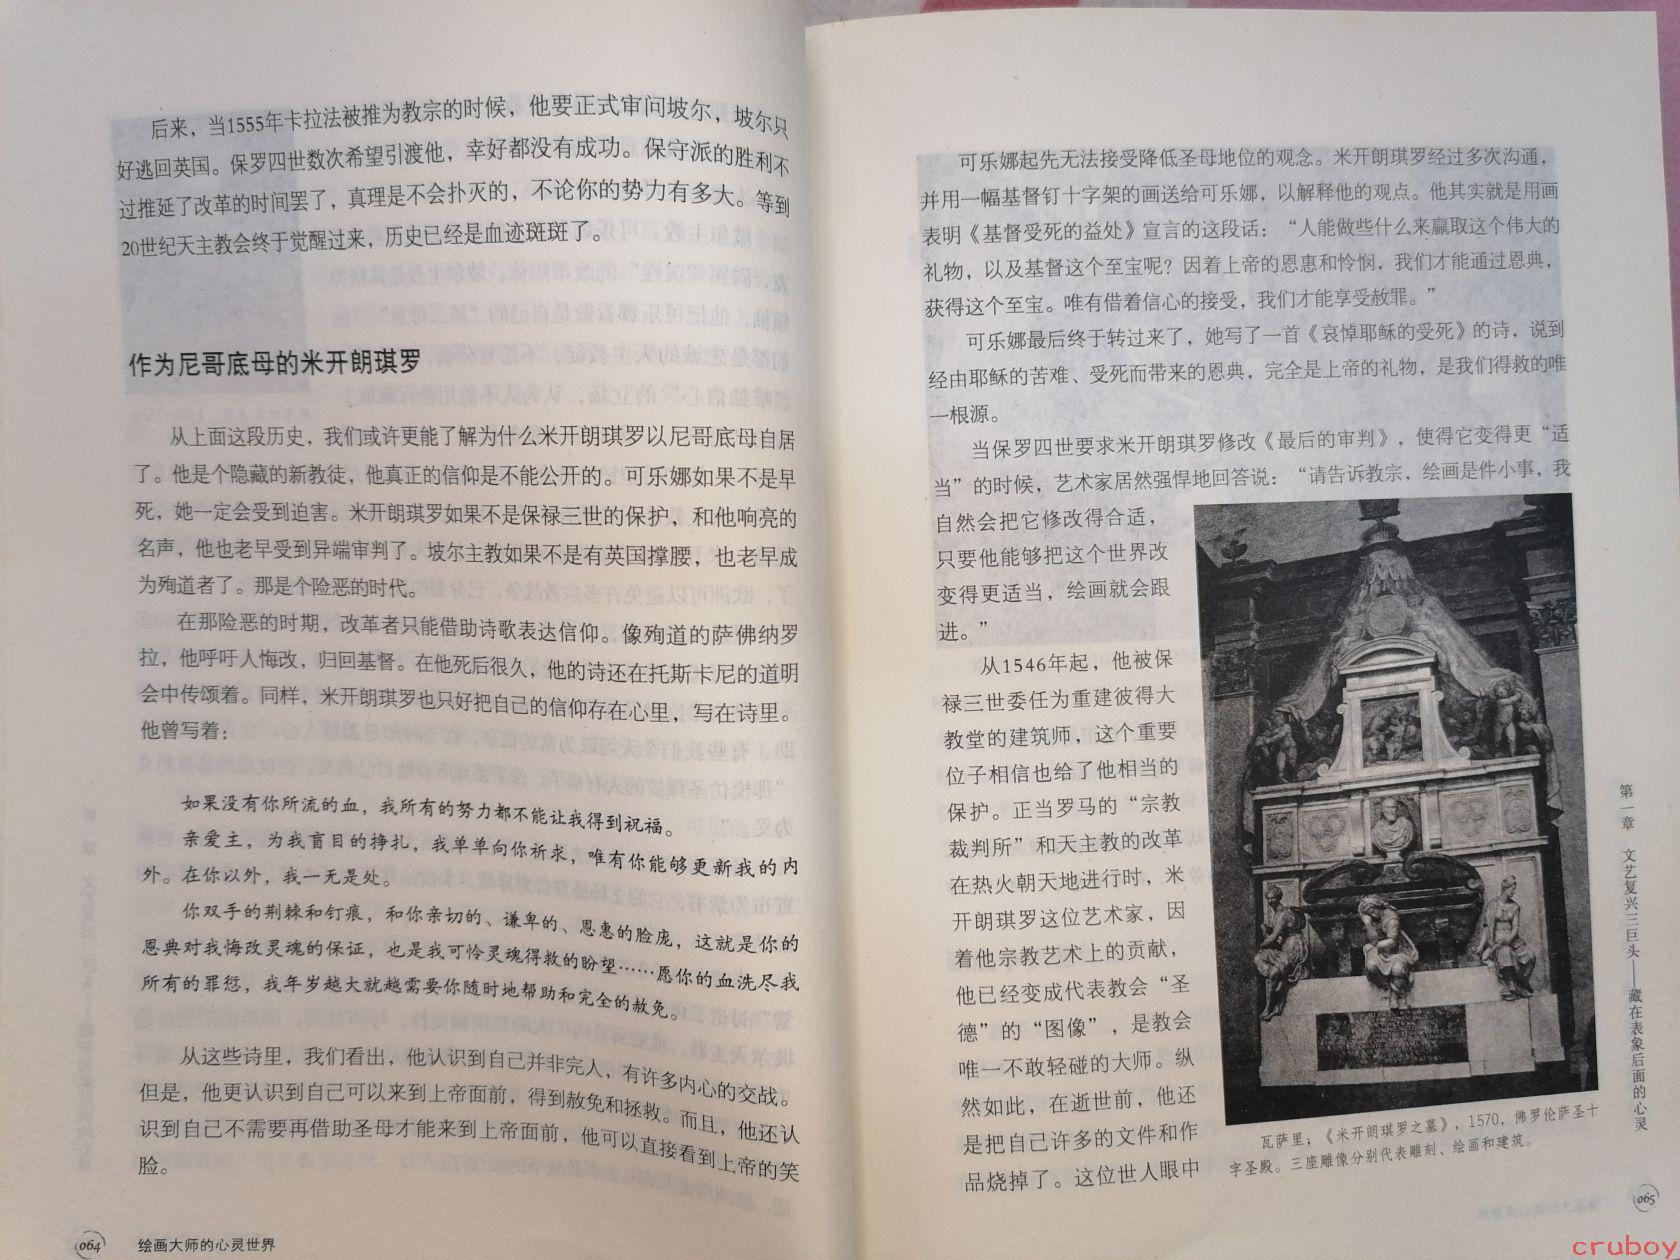 后来，当1555年卡拉法被推为教宗的时候，他要正式审问坡尔，坡尔只
好逃回英国。保罗四世数次希望引渡他，幸好都没有成功。保守派的胜利不
过推延了改革的时间罢了，真理是不会扑灭的，不论你的势力有多大。等到
20世纪天主教会终于觉醒过来，历史已经是血迹斑斑了。
作为尼哥底母的米开朗琪罗
从上面这段历史，我们或许更能了解为什么米开朗琪罗以尼哥底母自居
了。他是个隐藏的新教徒，他真正的信仰是不能公开的。可乐娜如果不是早
死，她一定会受到迫害。米开朗琪罗如果不是保禄三世的保护，和他响亮的
名声，他也老早受到异端审判了。坡尔主教如果不是有英国撑腰，也老早成
为殉道者了。那是个险恶的时代。
在那险恶的时期，改革者只能借助诗歌表达信仰。像殉道的萨佛纳罗
拉，他呼吁人悔改，归回基督。在他死后很久，他的诗还在托斯卡尼的道明
会中传颂着。同样，米开朗琪罗也只好把自己的信仰存在心里，写在诗里。
他曾写着：
如果没有你所流的血，我所有的努力都不能让我得到祝福。
亲爱主，为我盲目的挣扎，我单单向你祈求，唯有你能够更新我的内
外。在你以外，我一无是处。
你双手的荆棘和钉痕，和你亲切的、谦卑的、恩惠的脸庞，这就是你的
恩典对我悔改灵魂的保证，也是我可怜灵魂得救的盼望……愿你的血洗尽我
所有的罪愆，我年岁越大就越需要你随时地帮助和完全的赦免。
从这些诗里，我们看出，他认识到自己并非完人，有许多内心的交战。
但是，他更认识到自己可以来到上帝面前，得到赦免和拯救。而且，他还认
识到自己不需要再借助圣母才能来到上帝面前，他可以直接看到上帝的笑
脸。
064 绘画大师的心灵世界
可乐娜起先无法接受降低圣母地位的观念。米开朗琪罗经过多次沟通，
并用一幅基督钉十字架的画送给可乐娜，以解释他的观点。他其实就是用画
表明《基督受死的益处》宣言的这段话：“人能做些什么来赢取这个伟大的
礼物，以及基督这个至宝呢？因着上帝的恩惠和怜悯，我们才能通过恩典，
获得这个至宝。唯有借着信心的接受，我们才能享受赦罪。”
可乐娜最后终于转过来了，她写了一首《哀悼耶稣的受死》的诗，说到
经由耶稣的苦难、受死而带来的恩典，完全是上帝的礼物，是我们得救的唯
一根源。
当保罗四世要求米开朗琪罗修改《最后的审判》，使得它变得更“适
当”的时候，艺术家居然强悍地回答说：“请告诉教宗，绘画是件小事，我
自然会把它修改得合适，
只要他能够把这个世界改
变得更适当，绘画就会跟
进。”
从1546年起，他被保
禄三世委任为重建彼得大
教堂的建筑师，这个重要
位子相信也给了他相当的
保护。正当罗马的“宗教
裁判所”和天主教的改革
在热火朝天地进行时，米
开朗琪罗这位艺术家，因
着他宗教艺术上的贡献，
他已经变成代表教会“圣
德”的“图像”，是教会
唯一不敢轻碰的大师。纵
然如此，在逝世前，他还
是把自己许多的文件和作
品烧掉了。这位世人眼中
瓦萨里：《米开朗琪罗之墓》，1570，佛罗伦萨圣十
字圣殿。三座雕像分别代表雕刻、绘画和建筑。
第一章 文艺复兴三巨头——藏在表象后面的心灵
065
cruboy